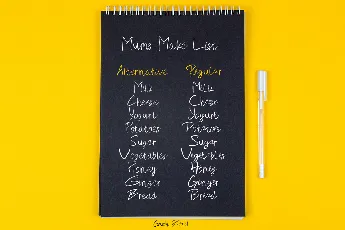 Mums Make List
Alternative Regular
Milk Milk
Cheese Cheese
Yogurt Yogurt
Potatoes Potatoes
Sugar Sugar
Vegetables Vegetables
Honey Honey
Ginger Ginger
Bread Bread